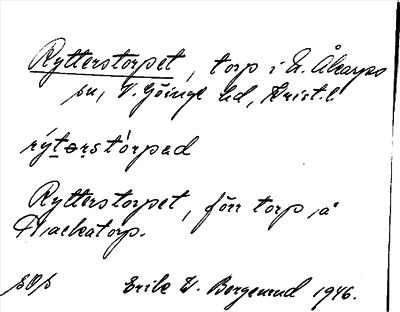 Rytterstorpet, torp i N. Åkarps
sn, V. Göinge hd, Krist. l.
rýt̠ərstórpəd
Rytterstorpet, förr torp på
Hackatorp.
Erik W. Bergerud 1946.